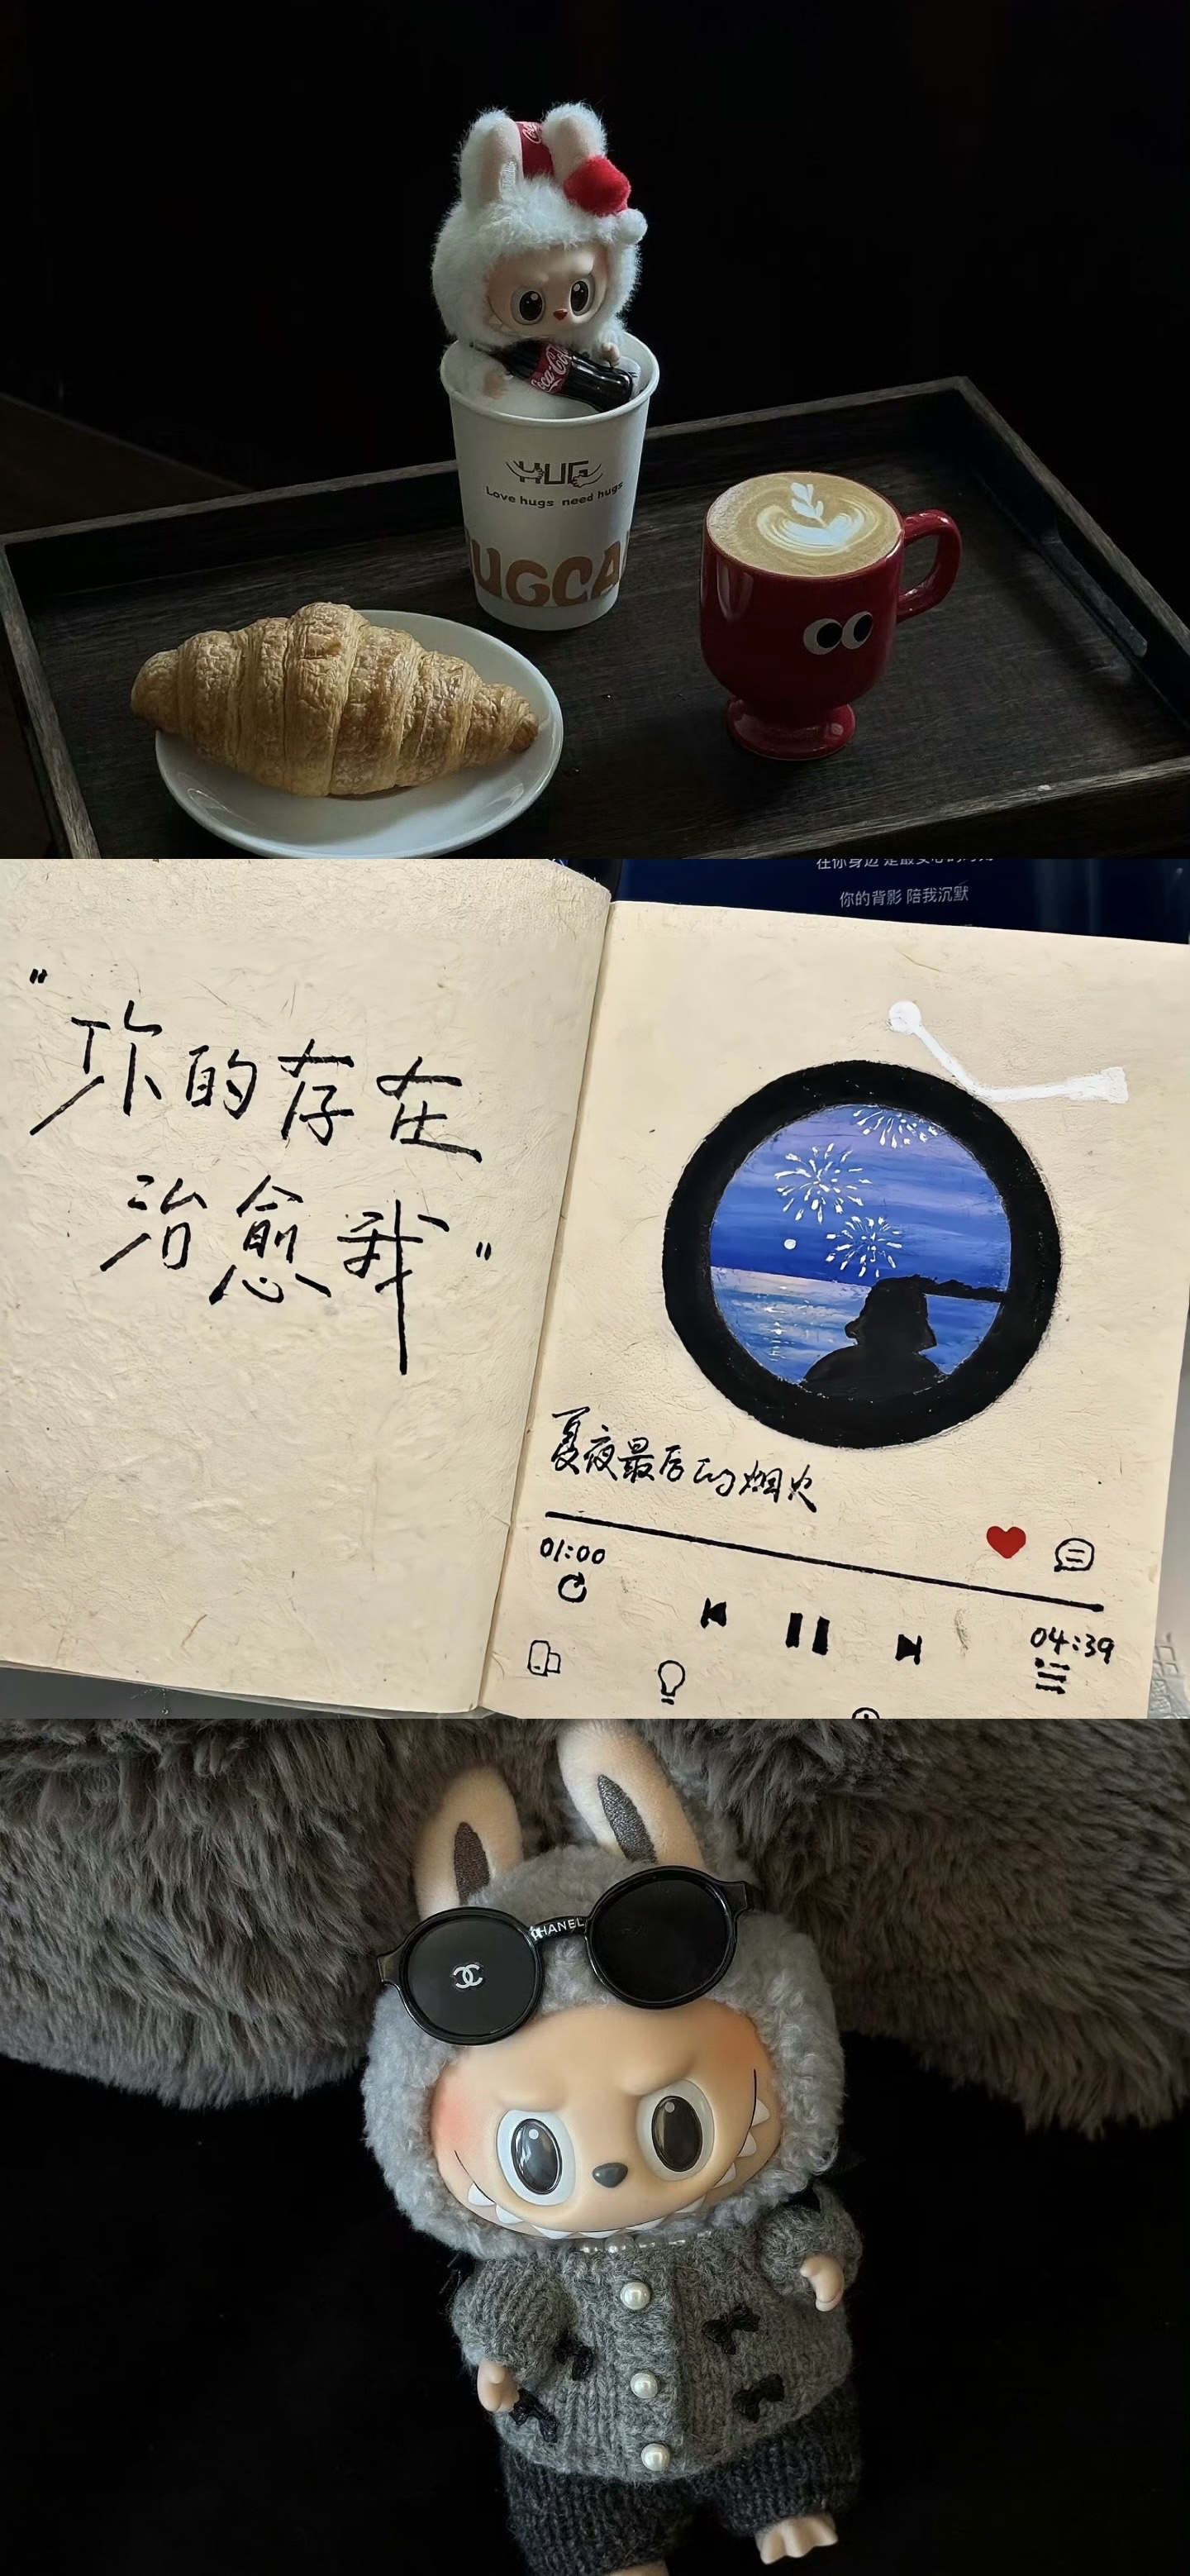 Coca-Cola
HUG
Love hugs need hugs
UGCA
你的背影 陪我沉默
"你的存在
治愈我"
夏夜最后的烟火
01:00
04:39
CHANEL